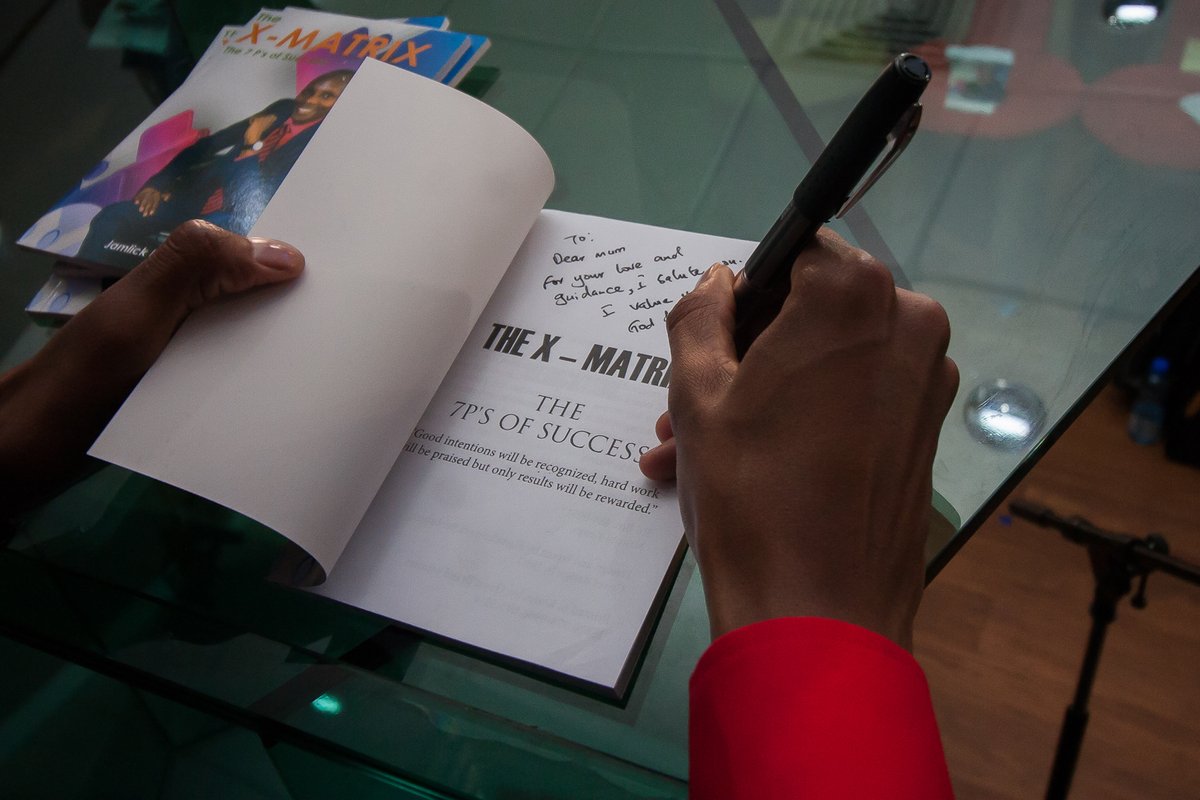 The
X-MATRIX
The 7 P's of
Jamlick
To:
Dear mum
For your love and
guidance, I salute you.
I value
God
THE X – MATRI
THE
7P'S OF SUCCESS
"Good intentions will be recognized, hard work
will be praised but only results will be rewarded."